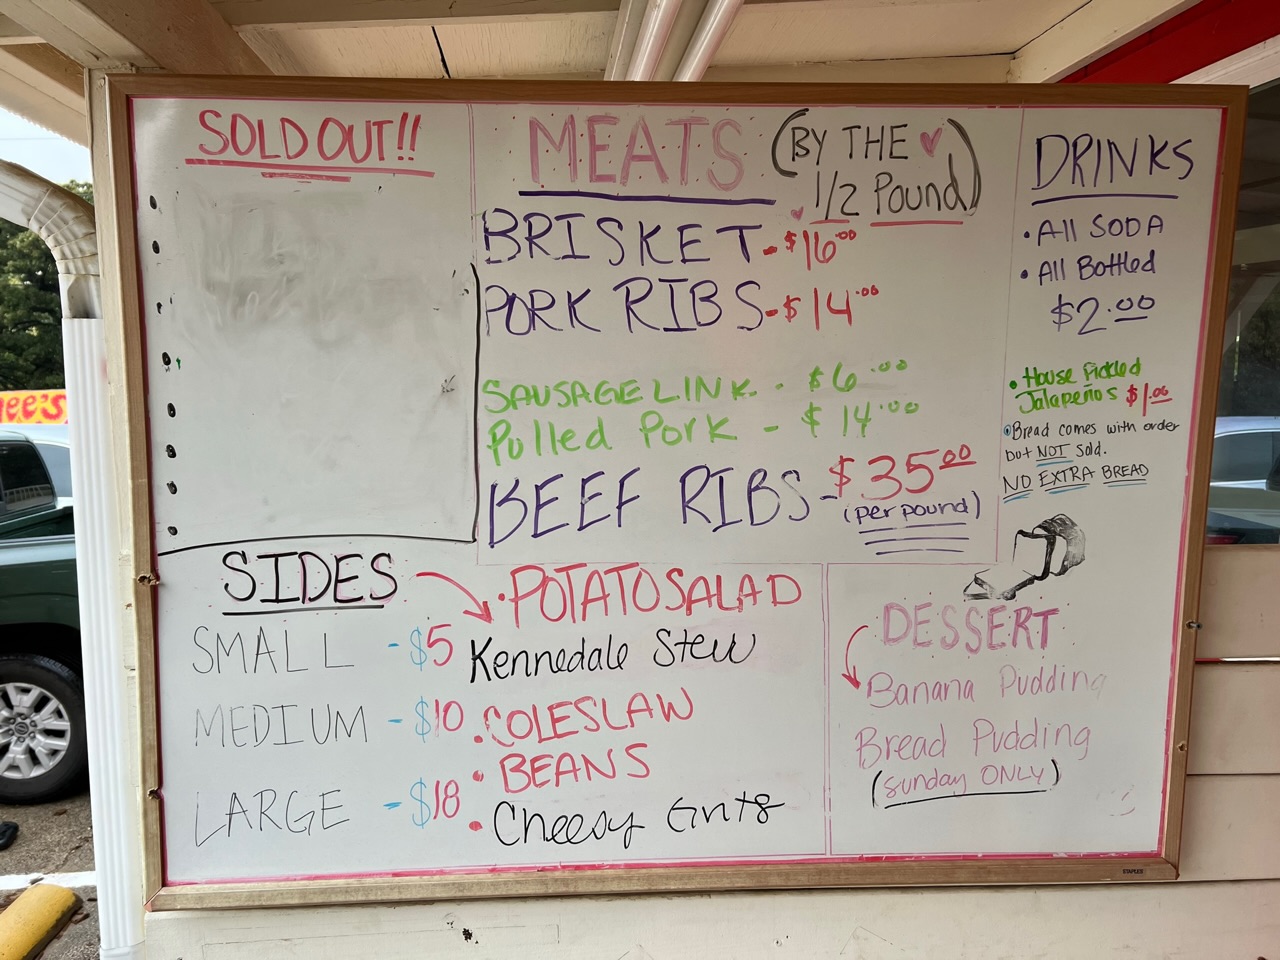 SOLD OUT!!
MEATS (BY THE
1/2 Pound)
BRISKET - $16.00
PORK RIBS - $14.00
SAUSAGE LINK - $6.00
Pulled Pork - $14.00
BEEF RIBS - $35.00
(per pound)
DRINKS
• All SODA
• All Bottled
$2.00
• House Pickled
Jalapeños $1.00
• Bread comes with order
but NOT sold.
NO EXTRA BREAD
SIDES
SMALL - $5
MEDIUM - $10
LARGE - $18
• POTATO SALAD
Kennedale Stew
• COLESLAW
• BEANS
• Cheesy Grits
DESSERT
Banana Pudding
Bread Pudding
(Sunday ONLY)
STAPLES
ee's